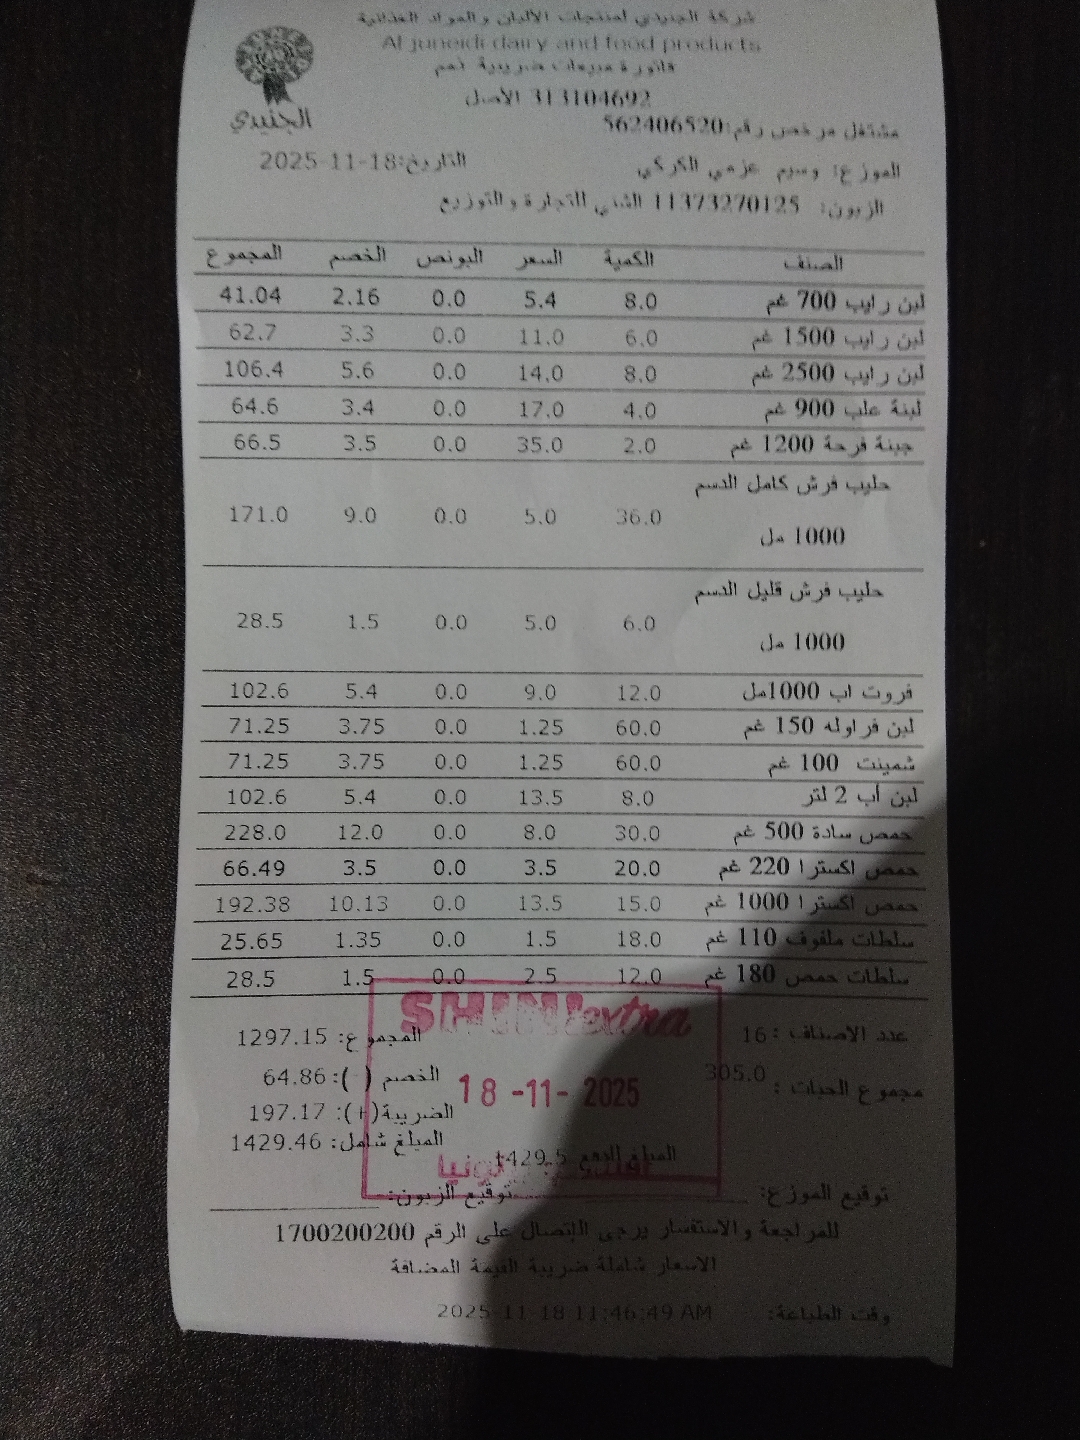 شركة الجنيدي لمنتجات الألبان والمواد الغذائية
Al juneidi dairy and food products
فاتورة مبيعات ضريبية ذمم
313104692 الأصل
الجنيدي
مشتغل مرخص رقم:562406520
الموزع: وسيم عزمي الكركي التاريخ:2025-11-18
الزبون: 11373270125 الشني للتجارة والتوزيع
الصنف الكمية السعر البونص الخصم المجموع
لبن رايب 700 غم 8.0 5.4 0.0 2.16 41.04
لبن رايب 1500 غم 6.0 11.0 0.0 3.3 62.7
لبن رايب 2500 غم 8.0 14.0 0.0 5.6 106.4
لبنة علب 900 غم 4.0 17.0 0.0 3.4 64.6
جبنة فرحة 1200 غم 2.0 35.0 0.0 3.5 66.5
حليب فرش كامل الدسم
1000 مل 36.0 5.0 0.0 9.0 171.0
حليب فرش قليل الدسم
1000 مل 6.0 5.0 0.0 1.5 28.5
فروت اب 1000مل 12.0 9.0 0.0 5.4 102.6
لبن فراوله 150 غم 60.0 1.25 0.0 3.75 71.25
شمينت 100 غم 60.0 1.25 0.0 3.75 71.25
لبن أب 2 لتر 8.0 13.5 0.0 5.4 102.6
حمص سادة 500 غم 30.0 8.0 0.0 12.0 228.0
حمص اكسترا 220 غم 20.0 3.5 0.0 3.5 66.49
حمص اكسترا 1000 غم 15.0 13.5 0.0 10.13 192.38
سلطات ملفوف 110 غم 18.0 1.5 0.0 1.35 25.65
سلطات حمص 180 غم 12.0 2.5 0.0 1.5 28.5
SHINI extra
عدد الاصناف : 16 المجموع: 1297.15
مجموع الحبات : 305.0 الخصم (-): 64.86
18 -11- 2025
الضريبة(+): 197.17
المبلغ شامل: 1429.46
المبلغ للدفع 1429.5
توقيع الموزع: توقيع الزبون:
للمراجعة والاستفسار يرجى الإتصال على الرقم 1700200200
الاسعار شاملة ضريبة القيمة المضافة
وقت الطباعة: 2025-11-18 11:46:49 AM